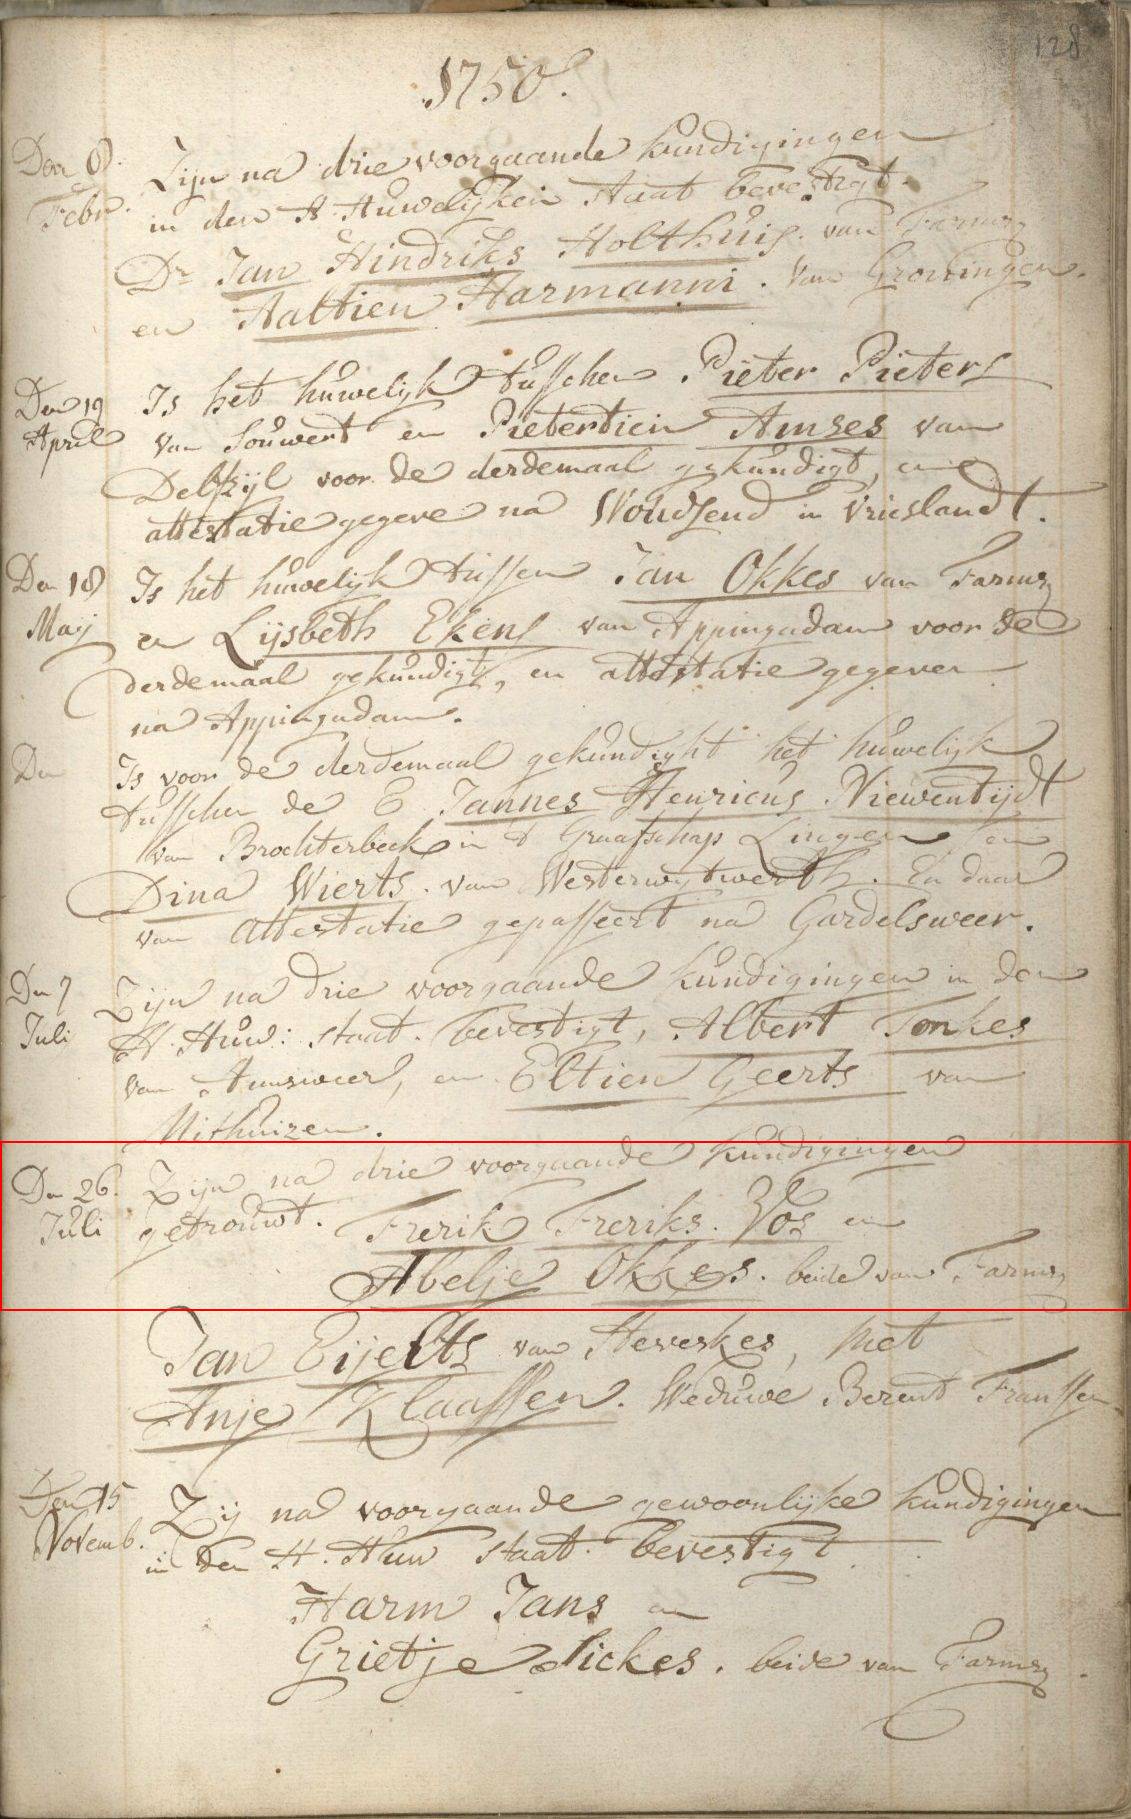 128
1750.
Den 8. Zijn na drie voorgaande kundigingen
Febr. in den H. Huwelijken Staat bevestigt.
Dr Jan Hindriks Holthuis. van Farms.
en Aaltien Harmanni. van Groningen.
Den 19 Is het huwelijk tusschen Pieter Pieters
April van Souwert en Pietertien Amses van
Delfzijl voor de derdemaal gekundigt, en
attestatie gegeve na Woudsend in Vrieslandt.
Den 18 Is het huwelijk tussen Jan Okkes van Farms.
Maij en Lijsbeth Ekens van Appingadam voor de
derdemaal gekundigt, en attestatie gegeven
na Appingadam.
Den Is voor de derdemaal gekundight het huwelijk
tusschen de E. Jannes Henricus Niewentijdt
van Brochterbeck in 't Graafschap Lingen en
Dina Wierts. van Westerwijtwerth. En daar
van attestatie gepasseert na Gardelsweer.
Den 7 Zijn na drie voorgaande kundigingen in den
Juli H. Huw: staat. bevestigt, Albert Tonkes
van Amsweer, en Eltien Geerts van
Uithuizen.
Den 26. Zijn na drie voorgaande kundigingen
Juli getrouwt. Frerik Freriks. Vos en
Abelje Okkes. beide van Farms.
Jan Eijelts van Heveskes, met
Anje Klaassen. Weduwe Berent Franssen
Den 15 Zij na voorgaande gewoonlijke kundigingen
Novemb. in den H. Huw staat. bevestigt
Harm Jans en
Grietje Sickes. beide van Farms.